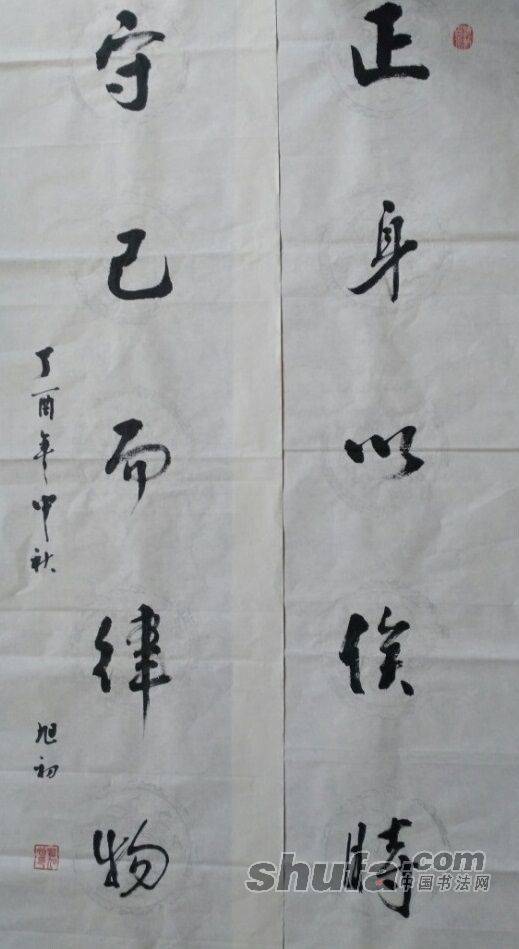 正身以俟時
守己而律物
丁酉年中秋
旭初
shufa.com
中国书法网